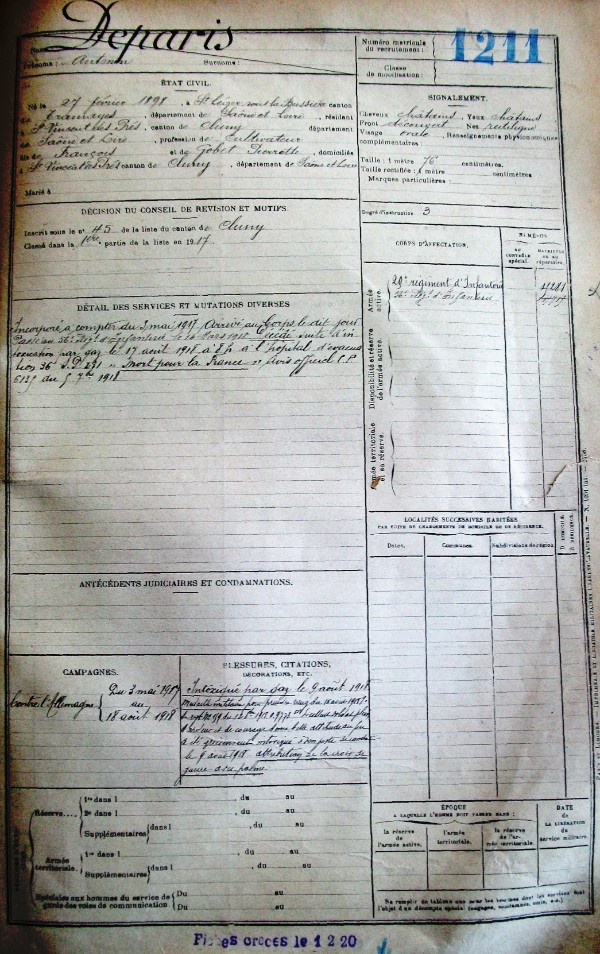 Nom : Deparis
Prénoms : Antonin Surnoms :
Numéro matricule
du recrutement : 1211
Classe
de mobilisation :
ÉTAT CIVIL.
Né le 27 février 1898, à St Léger sous la Bussière canton
de Tramayes, département de Saône et Loire, résidant
à St Vincent des Prés, canton de Cluny département
de Saône et Loire, profession de Cultivateur
fils de François et de Gobet Pierrette, domiciliés
à St Vincent des Prés canton de Cluny, département de Saône et Loire
Marié à
SIGNALEMENT.
Cheveux châtains Yeux châtains
Front découvert Nez rectiligne
Visage ovale Renseignements physionomiques
complémentaires :
Taille : 1 mètre 76 centimètres.
Taille rectifiée : 1 mètre centimètres
Marques particulières :
Degré d'instruction : 3
DÉCISION DU CONSEIL DE REVISION ET MOTIFS.
Inscrit sous le n° 45 de la liste du canton de Cluny
Classé dans la 1ère partie de la liste en 1917
CORPS D'AFFECTATION.
NUMÉROS
AU
CONTRÔLE
spécial.
MATRICULE
OU AU
RÉPERTOIRE.
Armée
active.
29e régiment d'Infanterie
56e Rég. d'Infanterie
Disponibilité et réserve
de l'armée active.
Armée territoriale
et sa réserve.
DÉTAIL DES SERVICES ET MUTATIONS DIVERSES
Incorporé à compter du 3 mai 1917 Arrivé au Corps le dit jour
Passé au 56e Rég. d'Infanterie le Mars 1918 Décédé suite d'in
toxication par gaz le 17 août 1918 à 8h à l'hôpital d'évacua
tion 36 S.P. "Mort pour la France" Avis officiel
du 5 7bre 1918
LOCALITÉS SUCCESSIVES HABITÉES
PAR SUITE DE CHANGEMENTS DE DOMICILE OU DE RÉSIDENCE.
Dates. Communes. Subdivisions de région. D. DOMICILE. R. RÉSIDENCE.
ANTÉCÉDENTS JUDICIAIRES ET CONDAMNATIONS.
CAMPAGNES.
Contre l'Allemagne
Du 3 mai 1917
au
18 août 1918
BLESSURES, CITATIONS,
DÉCORATIONS, ETC.
Intoxiqué par gaz le 9 août 1918
Médaille militaire
de bravoure et de courage
a été grièvement intoxiqué à son poste de combat
le 9 août 1918 attribution de la croix de
guerre avec palme
Réserve....
1re dans l , du au
2e dans l , du au
Supplémentaires dans l , du au
Armée
territoriale.
1re dans l , du au
Supplémentaires dans l , du au
Spéciales aux hommes du service de
garde des voies de communication
Du au
Du au
ÉPOQUE
A LAQUELLE L'HOMME DOIT PASSER DANS :
la réserve
de l'armée active.
l'armée
territoriale.
la réserve
de l'ar-
mée territoriale.
DATE
de
LA LIBÉRATION
du
service militaire.
Ne remplir ce tableau que pour les hommes dont les services font
l'objet d'un décompte spécial (engagés, condamnés, omis, etc.)